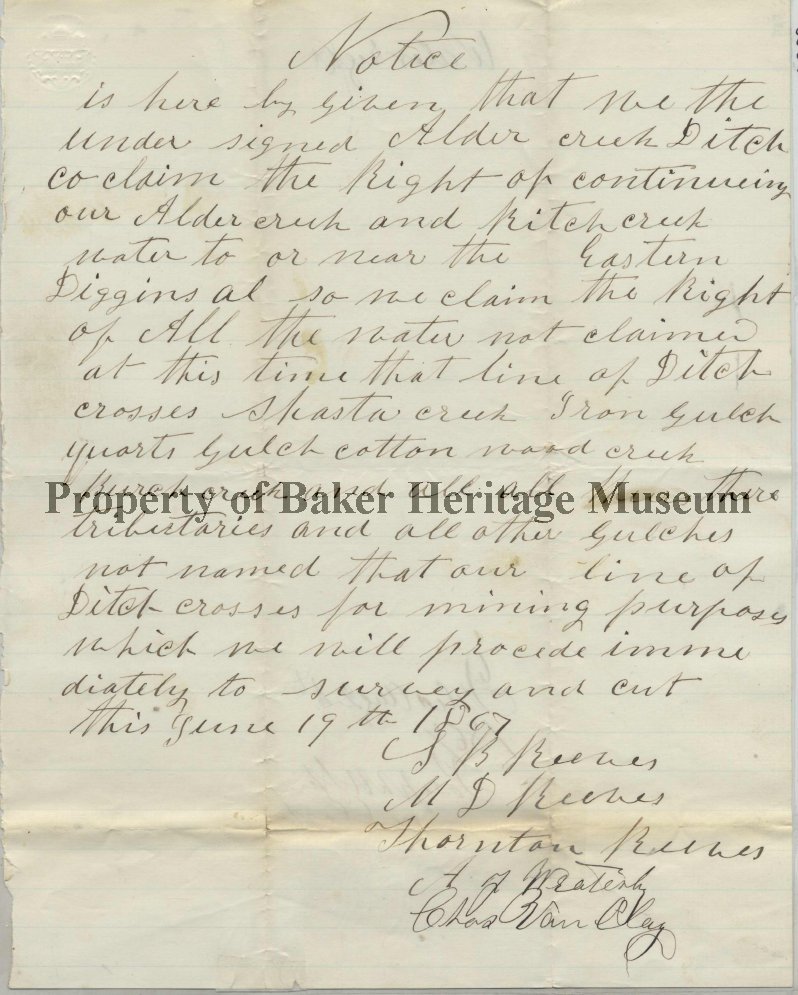 Notice
is here by Given that we the
under signed Alder creek Ditch
co claim the Right of continueing
our Alder creek and Ritch creek
water to or near the Eastern
Diggins al so we claim the Right
of All the water not claimed
at this time that line of Ditch
crosses Shasta creek Iron Gulch
quarts Gulch cotton wood creek
Burch creek and all all there
Property of Baker Heritage Museum
tribertaries and all other Gulches
not named that our line of
Ditch crosses for mining purposes
which we will procede imme
diately to survey and cut
this June 19th 1867
S B Reeves
M D Reeves
Thornton Reeves
A J
Chas Van Clay